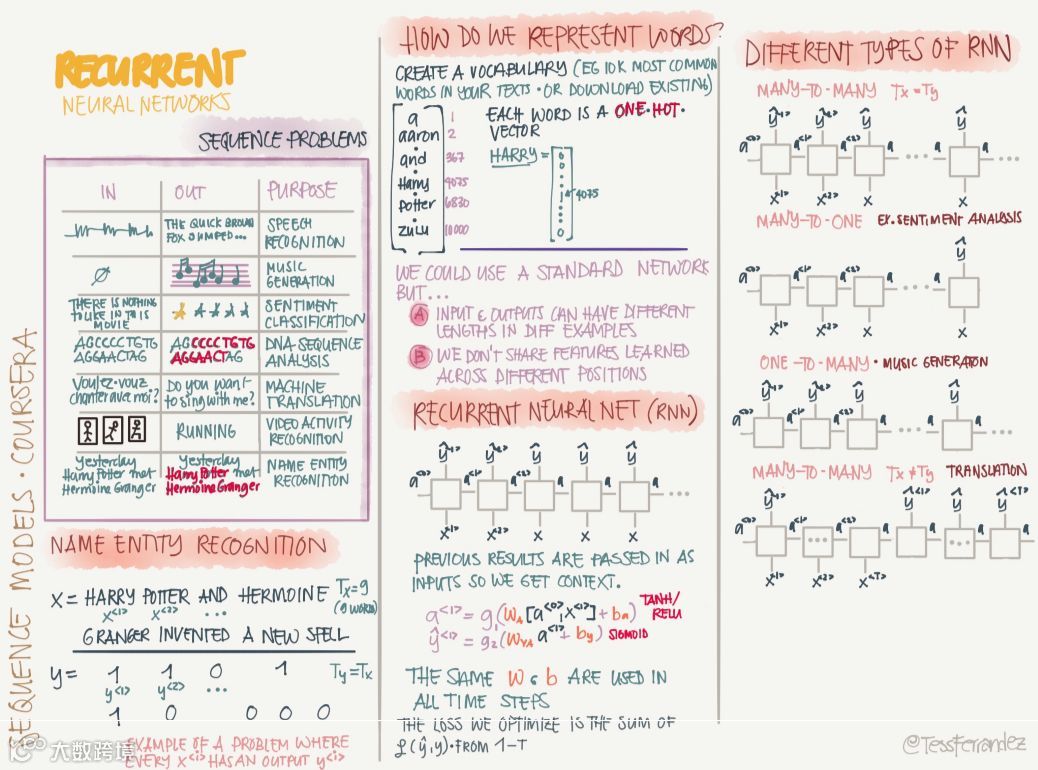 RECURRENT
NEURAL NETWORKS
SEQUENCE PROBLEMS
IN OUT PURPOSE
THE QUICK BROWN
FOX JUMPED...
SPEECH
RECOGNITION
∅
MUSIC
GENERATION
THERE IS NOTHING
TO LIKE IN THIS
MOVIE
SENTIMENT
CLASSIFICATION
AGCCCCTGTG
AGGAACTAG
AGCCCCTGTG
AGGAACTAG
DNA SEQUENCE
ANALYSIS
Voulez-vouz
chanter avec moi?
Do you want
to sing with me?
MACHINE
TRANSLATION
RUNNING
VIDEO ACTIVITY
RECOGNITION
Yesterday
Harry Potter met
Hermoine Granger
Yesterday
Harry Potter met
Hermoine Granger
NAME ENTITY
RECOGNITION
SEQUENCE MODELS · COURSERA
NAME ENTITY RECOGNITION
X = HARRY POTTER AND HERMOINE Tx=9
x<1> x<2> ... (9 WORDS)
GRANGER INVENTED A NEW SPELL
y = 1 1 0 1 Ty=Tx
y<1> y<2> ...
1 0 0 0 0
EXAMPLE OF A PROBLEM WHERE
EVERY X<i> HAS AN OUTPUT y<i>
大数跨境
HOW DO WE REPRESENT WORDS?
CREATE A VOCABULARY (EG 10K MOST COMMON
WORDS IN YOUR TEXTS · OR DOWNLOAD EXISTING)
a 1
aaron 2
and 367
Harry 4075
Potter 6830
zulu 10000
EACH WORD IS A ONE·HOT·
VECTOR
HARRY =
0
0
1 4075
0
WE COULD USE A STANDARD NETWORK
BUT...
A INPUT & OUTPUTS CAN HAVE DIFFERENT
LENGTHS IN DIFF EXAMPLES
B WE DON'T SHARE FEATURES LEARNED
ACROSS DIFFERENT POSITIONS
RECURRENT NEURAL NET (RNN)
ŷ<1> ŷ<2> ŷ ŷ ŷ
a<0> a<1> a<2> a a a ...
x<1> x<2> x x x
PREVIOUS RESULTS ARE PASSED IN AS
INPUTS SO WE GET CONTEXT.
a<1> = g1(WA[a<0>,x<1>]+ba) TANH/
RELU
ŷ<1> = g2(WYA a<1>+by) SIGMOID
THE SAME W & b ARE USED IN
ALL TIME STEPS
THE LOSS WE OPTIMIZE IS THE SUM OF
ℒ(ŷ,y)·FROM 1-T
DIFFERENT TYPES OF RNN
MANY-TO-MANY Tx=Ty
ŷ<1> ŷ<2> ŷ ŷ
a<0> a<1> a<2> a ... a a ...
x<1> x<2> x x
MANY-TO-ONE EX. SENTIMENT ANALYSIS
ŷ
a<0> a<1> a<2> a ... a
x<1> x<2> x x
ONE-TO-MANY · MUSIC GENERATION
ŷ<1> ŷ<2> ŷ ŷ
a<0> a<1> a<2> a ... a a ...
x<1>
MANY-TO-MANY Tx≠Ty TRANSLATION
ŷ<1> ŷ ŷ<T>
a<0> a<1> ... a<2> a a ... a a
x<1> x<2> x<T>
@TessFerrandez